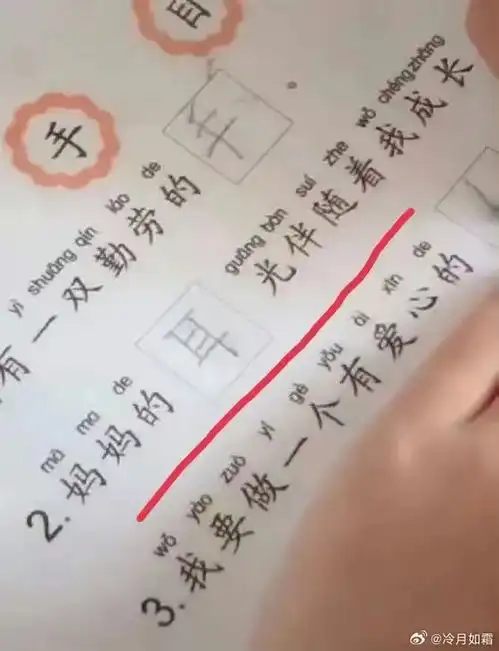 手
yì shuāng qín láo de
有一双勤劳的 手
mā ma de guāng bàn suí zhe wǒ chéngzhǎng
2. 妈妈的 耳 光伴随着我成长
wǒ yào zuò yí gè yǒu ài xīn de
3. 我要做一个有爱心的
@冷月如霜